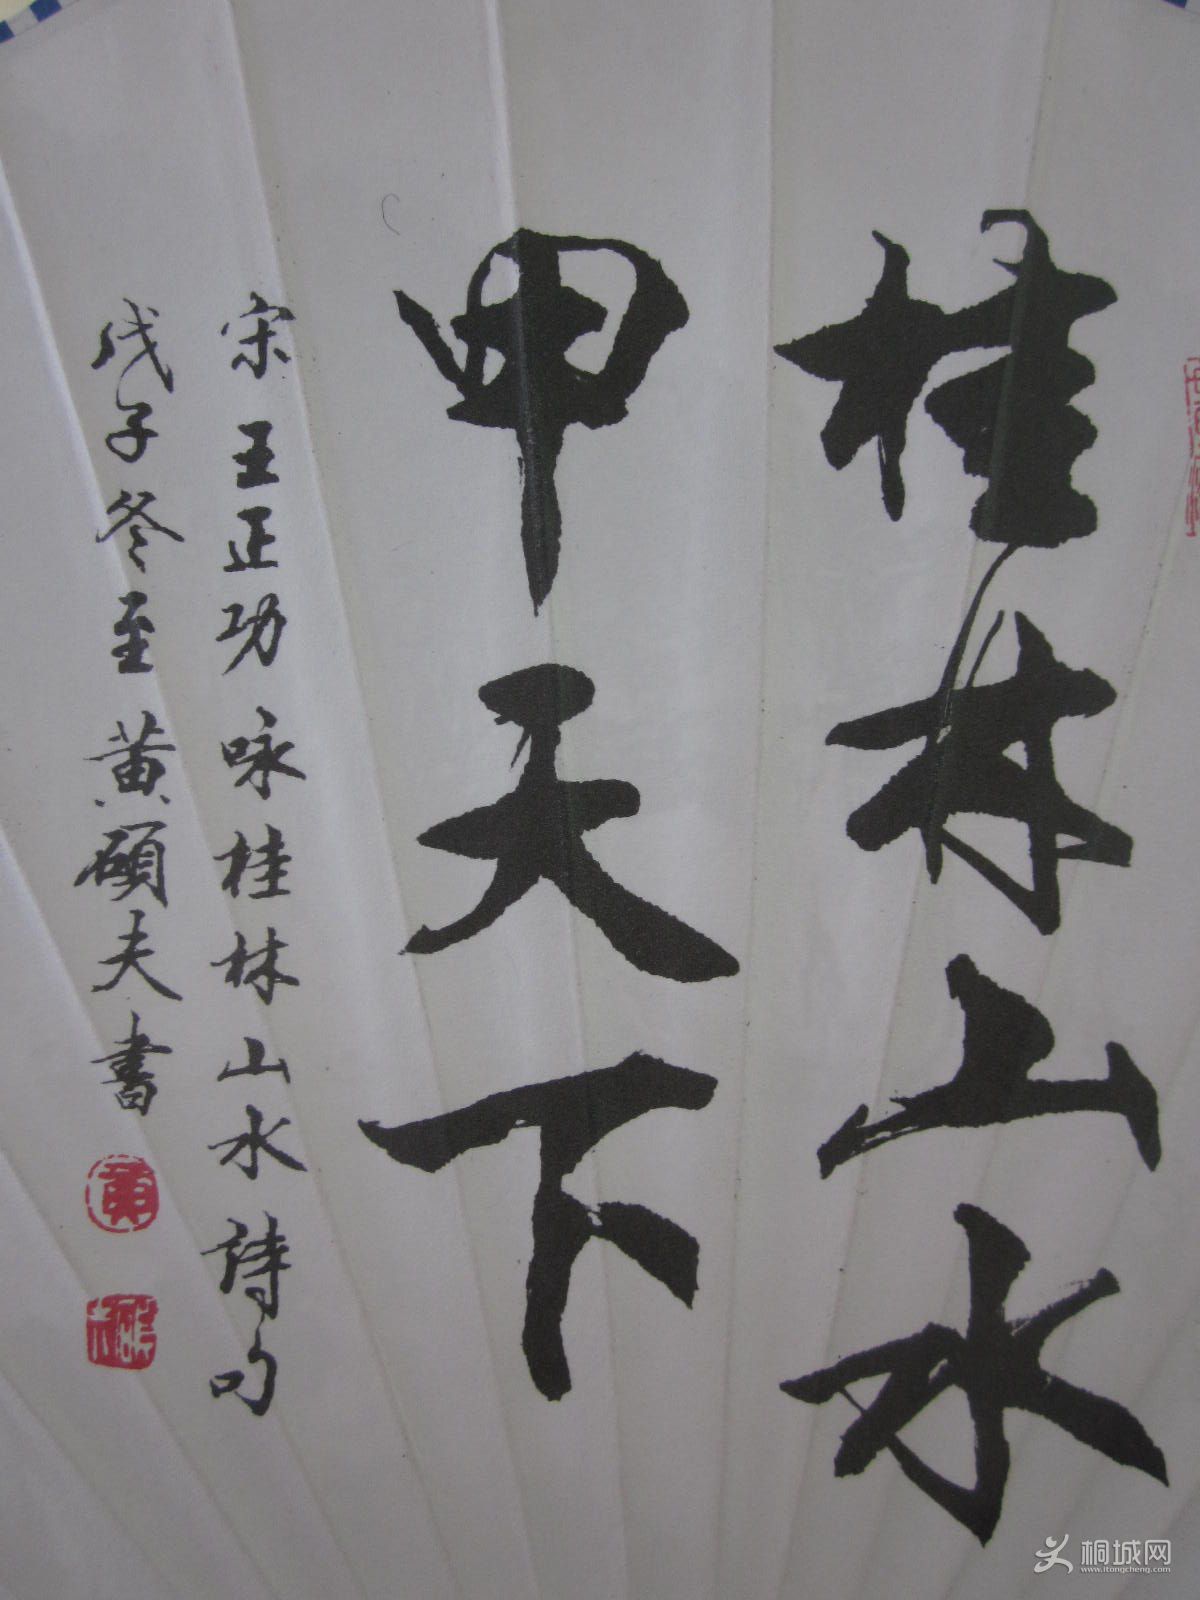 桂林山水
甲天下
宋王正功咏桂林山水詩句
戊子冬至黄碩夫書
桐城网
www.itongcheng.com